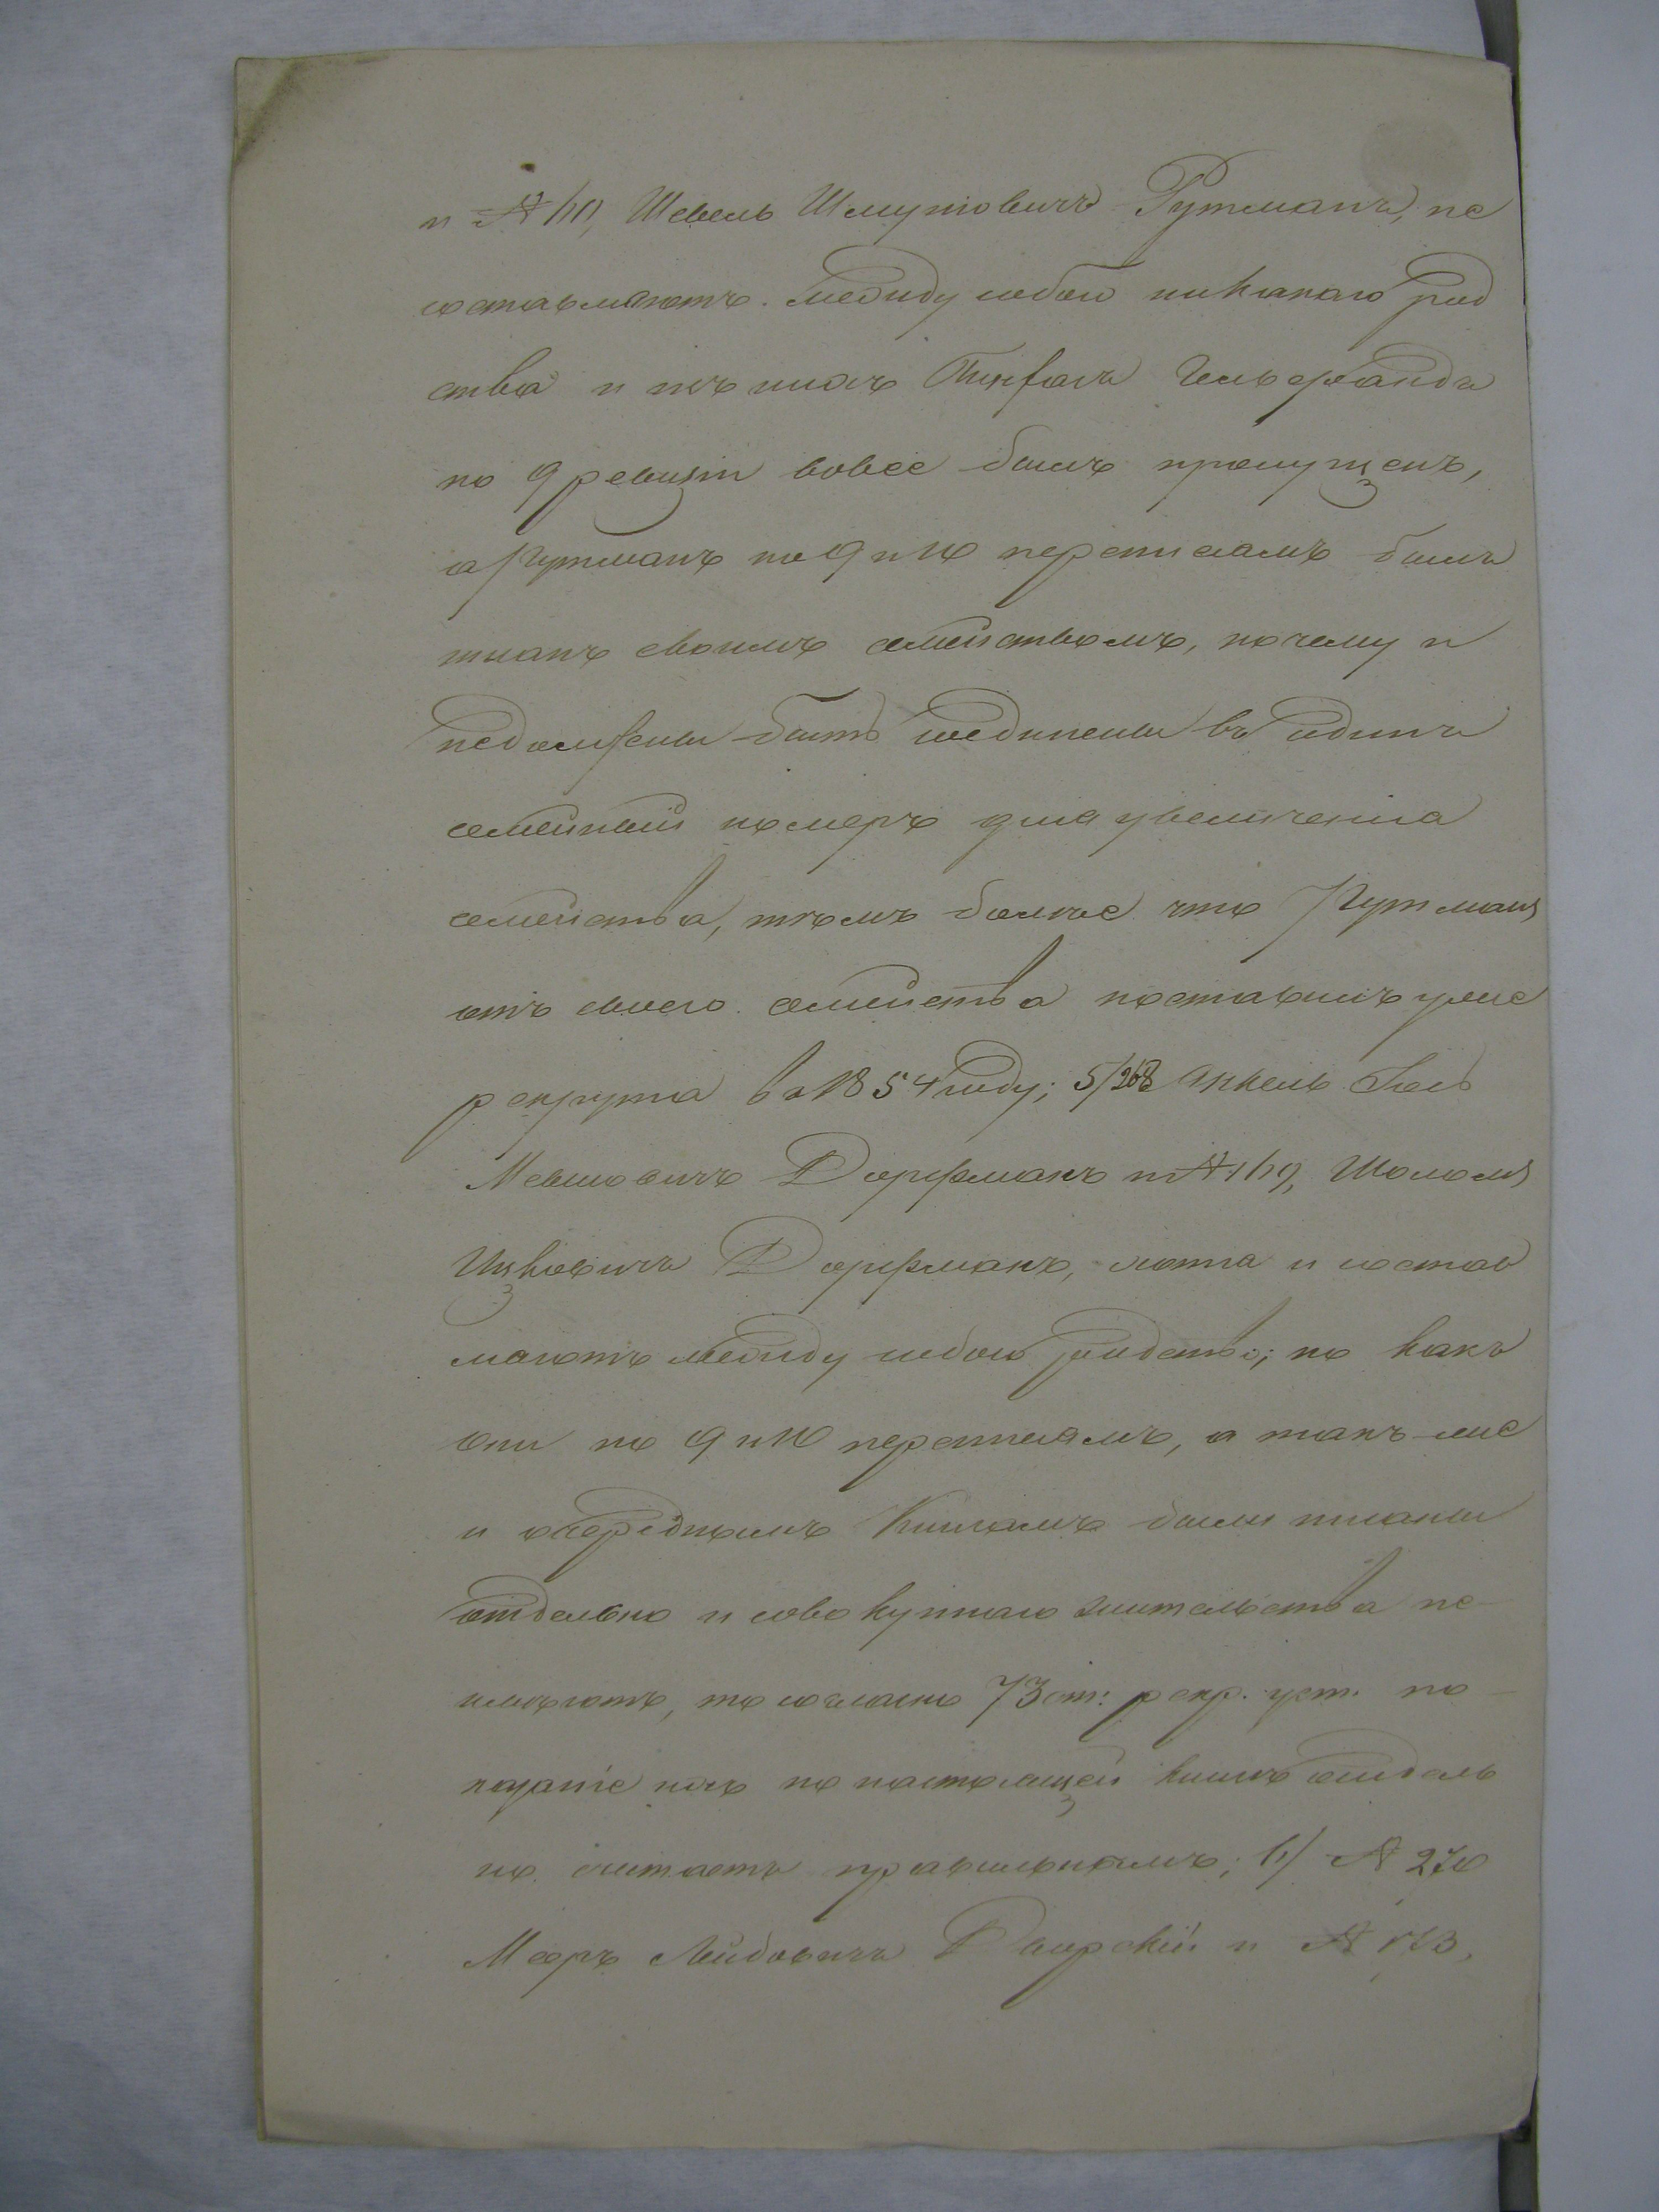 и № 60, Шевель Шмуйловичъ Гутманъ, не
составляютъ между собой никакаго род
ства и изъ нихъ Гельфандъ
по 9 ревизіи вовсе былъ пропущенъ,
а Гутманъ по 9 и 10 переписямъ былъ
писанъ своимъ семействомъ, почему и
недолжены быть соединены въ одинъ
семейный номеръ для увеличенія
семейства, тѣмъ болѣе что Гутманъ
отъ своего семейства поставилъ уже
рекрута въ 1854 году; 5/ 268 Янкель
Мевшовичъ Дорфманъ и № 169, Шоломъ
Ицковичъ Дорфманъ, хотя и состав
ляютъ между собою родство; но какъ
они по 9 и 10 переписямъ, а такъ же
и очереднымъ книгамъ были писаны
отдельно и совокупнаго жительства не
имѣютъ, то согласно 73 ст: рекр. уст. по
казаніе ихъ по настоящей книгѣ отдель
но считаетъ правильнымъ; 6/ № 270
Меръ Лейбовичъ и № 173,